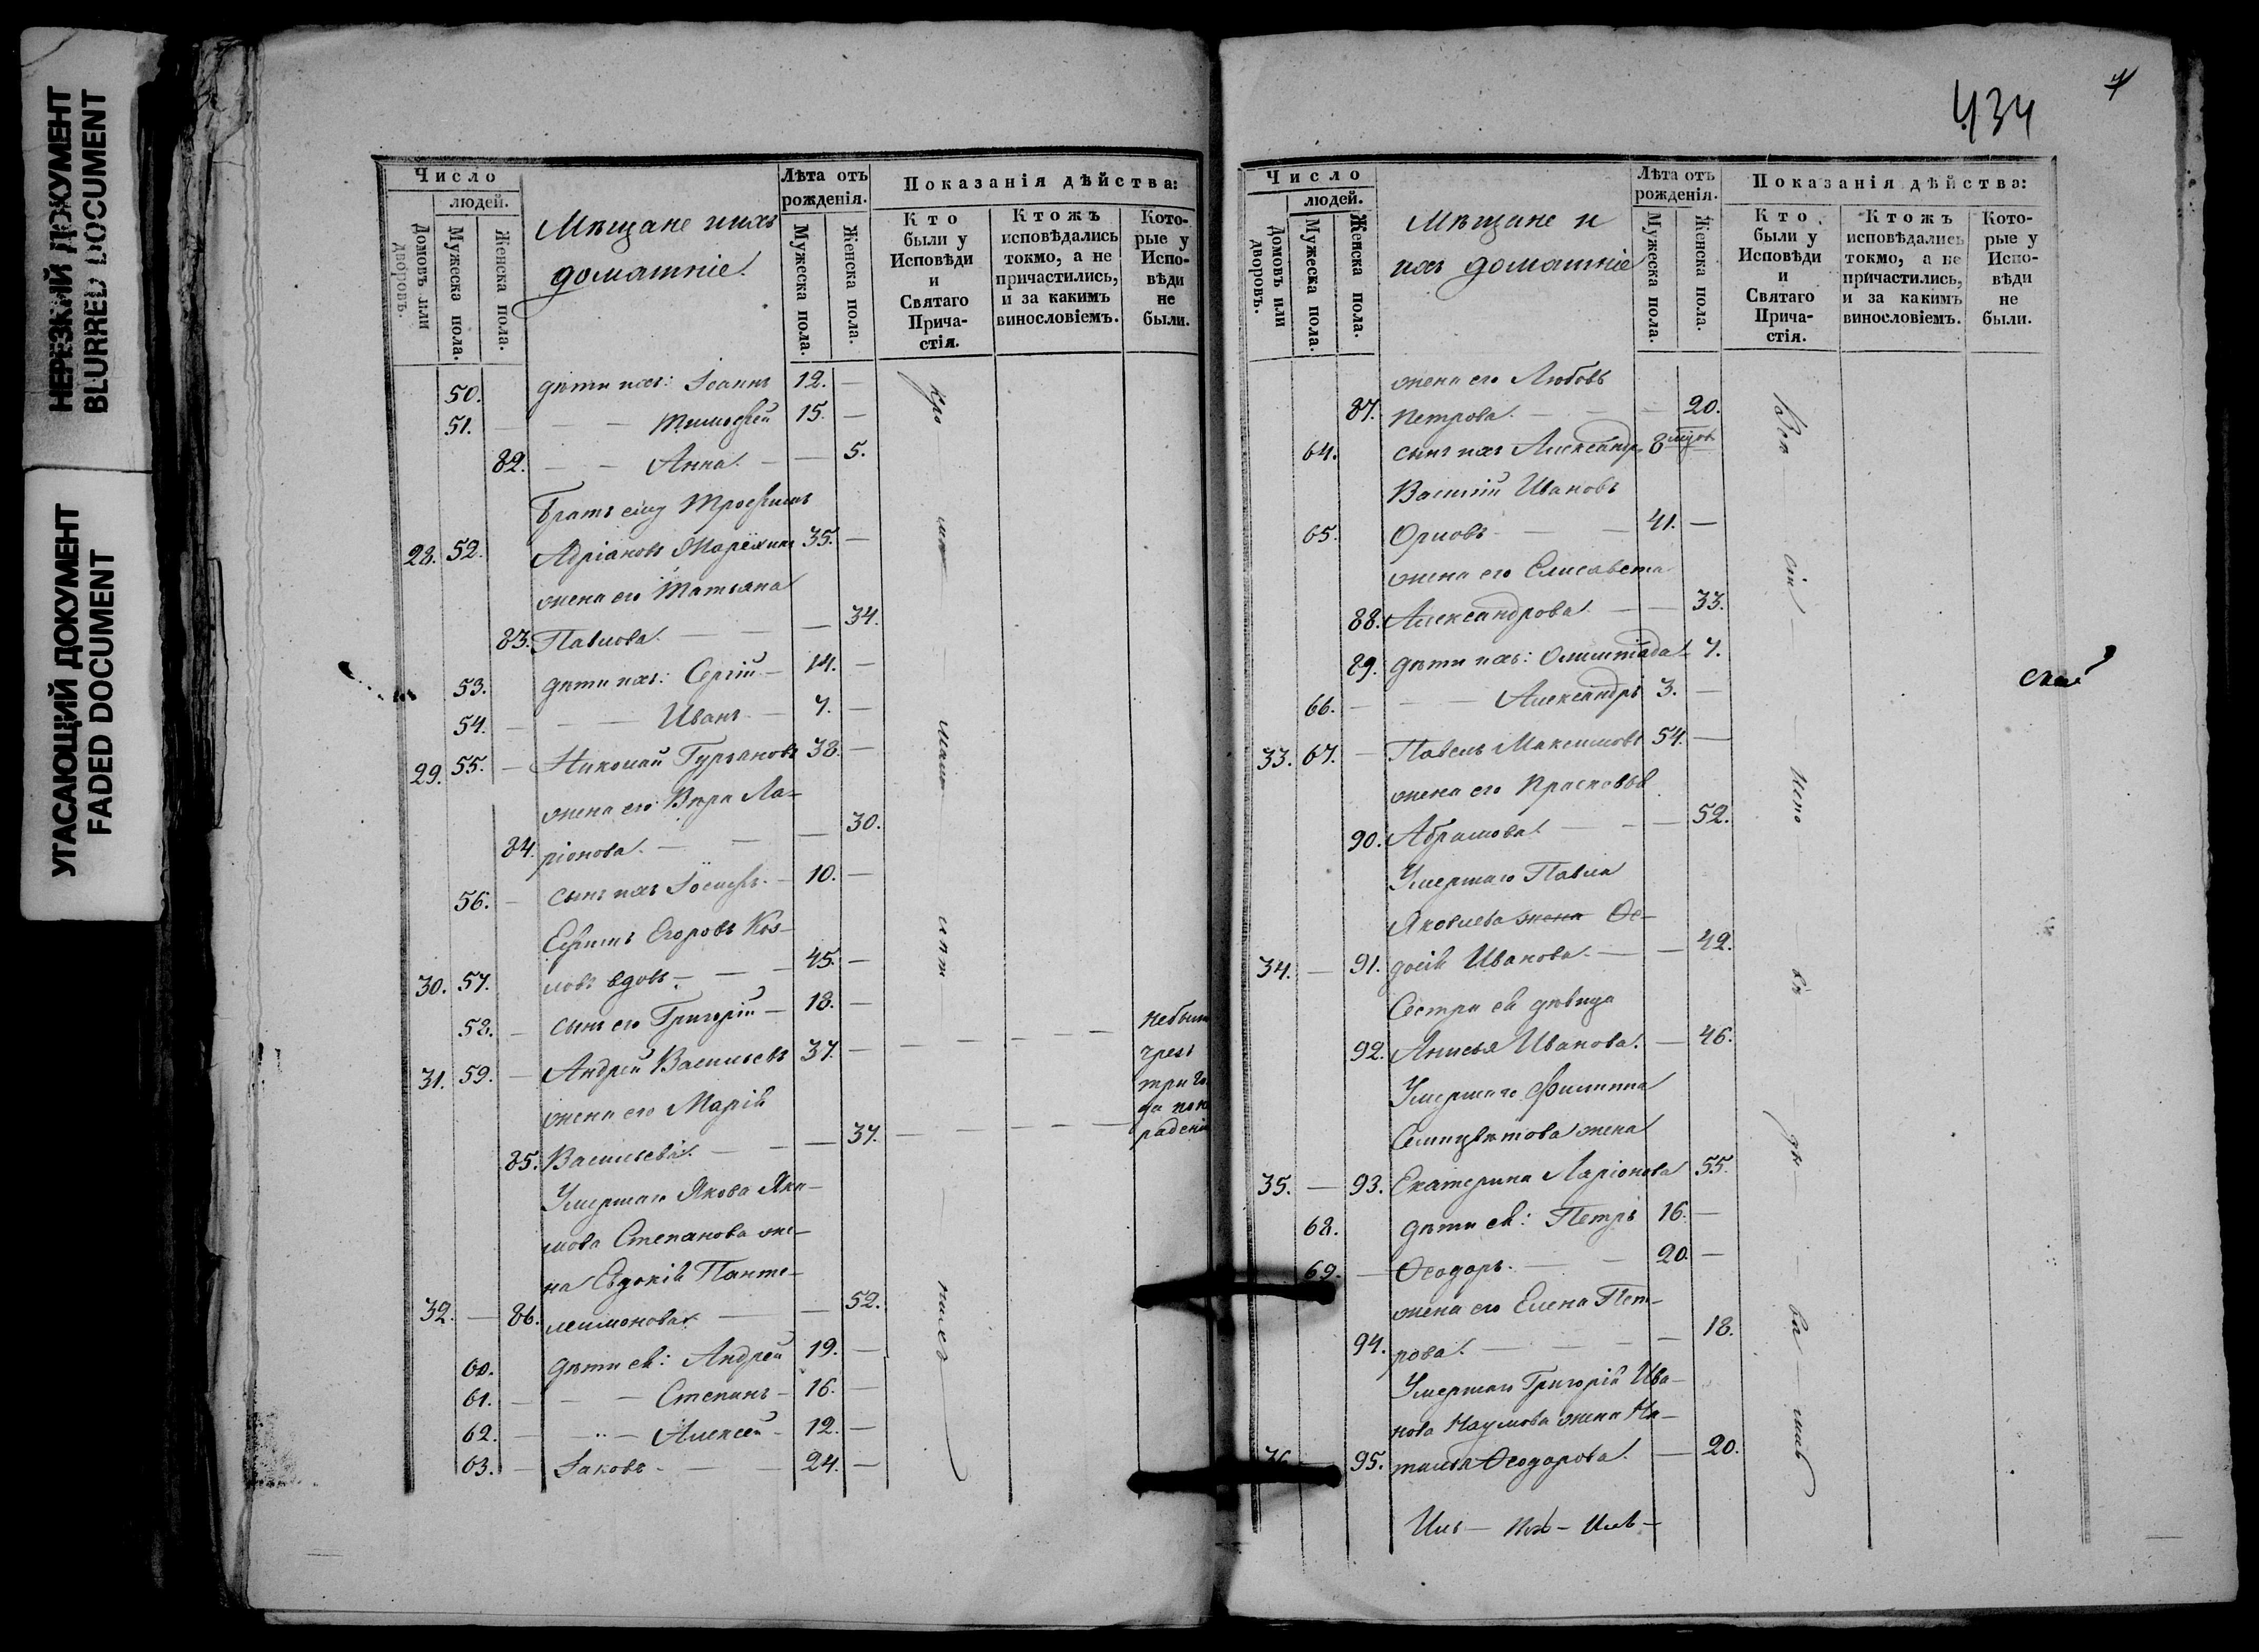 НЕРЕЗКИЙ ДОКУМЕНТ
BLURRED DOCUMENT
УГАСАЮЩИЙ ДОКУМЕНТ
FADED DOCUMENT
Число
людей.
Домовъ или дворовъ.
Мужеска пола.
Женска пола.
Мѣщане и ихъ
домашніе.
Лѣта отъ
рожденія.
Мужеска пола.
Женска пола.
Показанія дѣйства:
Кто
были у
Исповѣди
и
Святаго
Прича-
стія.
Ктожъ
исповѣдались
токмо, а не
причастились,
и за какимъ
винословіемъ.
Кото-
рые у
Испо-
вѣди
не
были.
50. дѣти ихъ: Іоаннъ 12. —
51. — — — Тимоѳей 15. —
82. — — Анна — — 5.
Братъ ему Трофимъ
28. 52. Адріановъ 35. —
жена его Татьяна
83. Павлова — — — 34.
53. дѣти ихъ: Сергій — 14. —
54. — — — Иванъ — 7. —
29. 55. — Николай Гурьяновъ 38. —
жена его Вѣра Ла-
84. ріонова. — — — 30.
56. — сынъ ихъ Іосифъ — 10. —
Ефимъ Егоровъ Коз-
30. 57. ловъ вдовъ — — — 45. —
58. — сынъ его Григорій — 18. —
31. 59. — Андрей Васильевъ 37. — — — — — — небыли
чрезъ
жена его Марія три го-
да по не-
85. Васильева — — — 37. — — — — — радѣнію
Умершаго Якова Яки-
мова Степанова же-
на Евдокія Панте-
32. — 86. леимонова — — 52.
60. дѣти ея: Андрей 19. —
61. — — — Степанъ — 16. —
62. — — — Алексей — 12. —
63. — Іаковъ — — — 24. —
434
7
Число
людей.
Домовъ или дворовъ.
Мужеска пола.
Женска пола.
Мѣщане и
ихъ домашніе
Лѣта отъ
рожденія.
Мужеска пола.
Женска пола.
Показанія дѣйства:
Кто
были у
Исповѣди
и
Святаго
Прича-
стія.
Ктожъ
исповѣдались
токмо, а не
причастились,
и за какимъ
винословіемъ.
Кото-
рые у
Испо-
вѣди
не
были.
жена его Любовь
87. Петрова — — — 20.
64. сынъ ихъ Александръ 8
Василій Ивановъ
65. Орловъ — — 41. —
жена его Елисавета
88. Александрова — — 33.
89. дѣти ихъ: Олимпіада 7.
66. — — — Александръ 3. —
33. 67. — Павелъ Максимовъ 54. —
жена его Прасковья
90. Абрамова — — — 52.
Умершаго Павла
Яковлева жена Ѳе-
34. — 91. досія Иванова — — 42.
Сестра ея дѣвица
92. Анисья Иванова. — 46.
Умершаго Филиппа
Семицвѣтова жена
35. — 93. Екатерина Ларіонова 55.
68. дѣти ея: Петръ 16. —
69. — Ѳеодоръ — — 20. —
жена его Елена Пет-
94. рова. — — — — 18.
Умершаго Григорія Ива-
нова Наумова жена На-
36. — 95. талья Ѳеодорова. — 20.